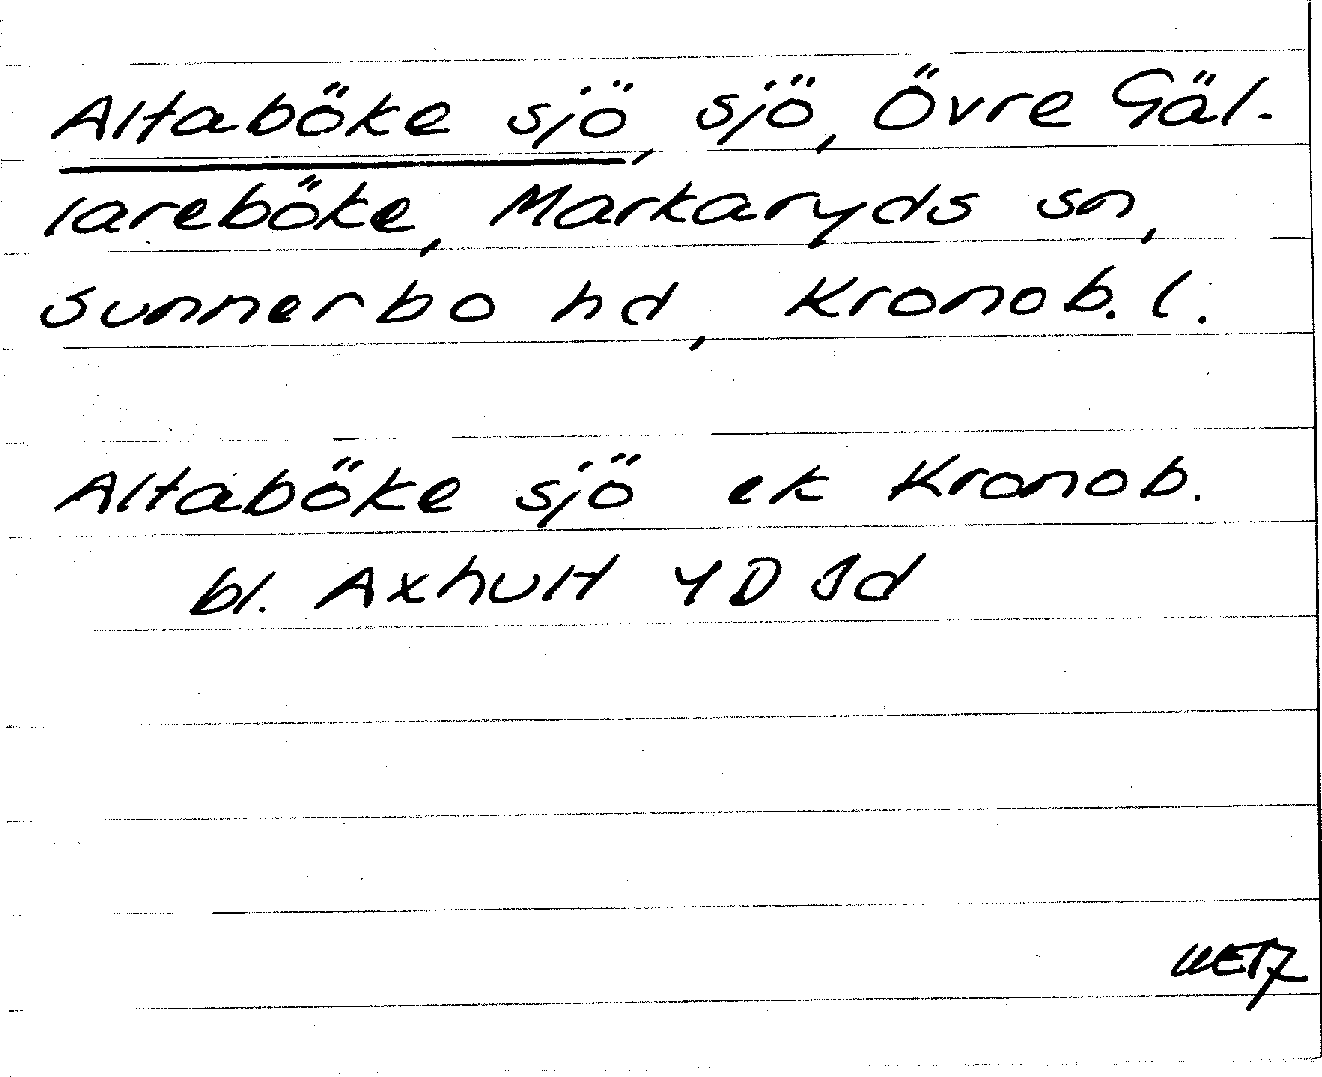 Altaböke sjö, sjö, Övre Gäl-
lareböke, Markaryds sn,
Sunnerbo hd, Kronob. l.
Altaböke sjö ek Kronob.
bl. Axhult 4D Jd